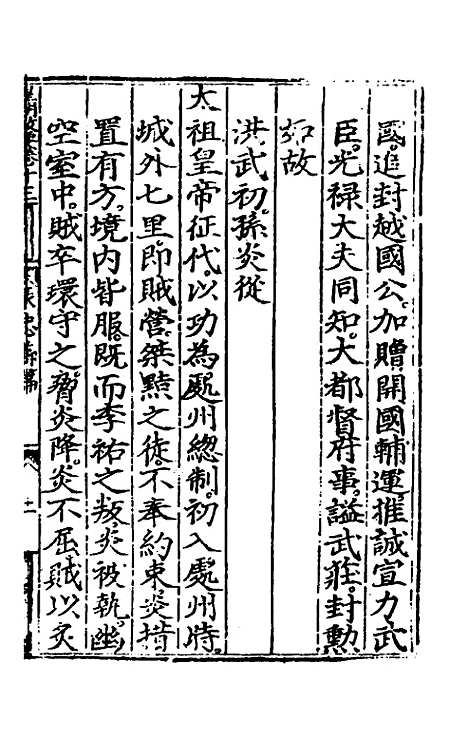 國。追封越國公。加贈開國輔運。推誠宣力。武
臣。光禄大夫同知。大都督府事。謚武莊。封勲
如故
洪武初。孫炎從
太祖皇帝征伐。以功為處州總制。初入處州時。
城外七里。即賊營。桀黠之徒。不奉約束。炎措
置有方。境内皆服。既而李祐之叛。炎被執。幽
空室中。賊卒環守之。脅炎降。炎不屈。賊以炙